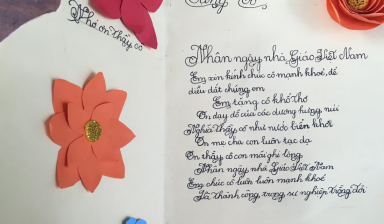 Nhớ ơn thầy cô
Nhân ngày nhà Giáo Việt Nam
Em xin kính chúc cô mạnh khoẻ, để
dìu dắt chúng em
Em tặng cô khổ thơ
Ơn dạy dỗ của các dương hưng núi
Nghĩa thầy cô như nước biển khơi
Ơn mẹ cha con luôn tạc dạ
Ơn thầy cô con mãi ghi lòng
Nhân ngày nhà Giáo Việt Nam
Em chúc cô luôn luôn mạnh khoẻ
Và thành công trong sự nghiệp trồng đời